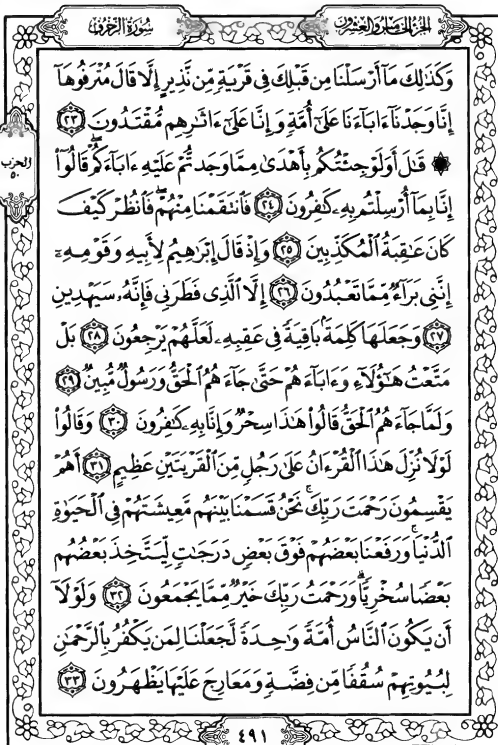 الجزء الخامس والعشرون
سورة الزخرف
وَكَذَٰلِكَ مَآ أَرْسَلْنَا مِن قَبْلِكَ فِى قَرْيَةٍ مِّن نَّذِيرٍ إِلَّا قَالَ مُتْرَفُوهَآ
إِنَّا وَجَدْنَآ ءَابَآءَنَا عَلَىٰٓ أُمَّةٍ وَإِنَّا عَلَىٰٓ ءَاثَٰرِهِم مُّقْتَدُونَ ٢٣
۞ قَٰلَ أَوَلَوْ جِئْتُكُم بِأَهْدَىٰ مِمَّا وَجَدتُّمْ عَلَيْهِ ءَابَآءَكُمْ ۖ قَالُوٓا۟
إِنَّا بِمَآ أُرْسِلْتُم بِهِۦ كَٰفِرُونَ ٢٤ فَٱنتَقَمْنَا مِنْهُمْ ۖ فَٱنظُرْ كَيْفَ
كَانَ عَٰقِبَةُ ٱلْمُكَذِّبِينَ ٢٥ وَإِذْ قَالَ إِبْرَٰهِيمُ لِأَبِيهِ وَقَوْمِهِۦٓ
إِنَّنِى بَرَآءٌ مِّمَّا تَعْبُدُونَ ٢٦ إِلَّا ٱلَّذِى فَطَرَنِى فَإِنَّهُۥ سَيَهْدِينِ
٢٧ وَجَعَلَهَا كَلِمَةًۢ بَاقِيَةً فِى عَقِبِهِۦ لَعَلَّهُمْ يَرْجِعُونَ ٢٨ بَلْ
مَتَّعْتُ هَٰٓؤُلَآءِ وَءَابَآءَهُمْ حَتَّىٰ جَآءَهُمُ ٱلْحَقُّ وَرَسُولٌ مُّبِينٌ ٢٩
وَلَمَّا جَآءَهُمُ ٱلْحَقُّ قَالُوا۟ هَٰذَا سِحْرٌ وَإِنَّا بِهِۦ كَٰفِرُونَ ٣٠ وَقَالُوا۟
لَوْلَا نُزِّلَ هَٰذَا ٱلْقُرْءَانُ عَلَىٰ رَجُلٍ مِّنَ ٱلْقَرْيَتَيْنِ عَظِيمٍ ٣١ أَهُمْ
يَقْسِمُونَ رَحْمَتَ رَبِّكَ ۚ نَحْنُ قَسَمْنَا بَيْنَهُم مَّعِيشَتَهُمْ فِى ٱلْحَيَوٰةِ
ٱلدُّنْيَا ۚ وَرَفَعْنَا بَعْضَهُمْ فَوْقَ بَعْضٍ دَرَجَٰتٍ لِّيَتَّخِذَ بَعْضُهُم
بَعْضًا سُخْرِيًّا ۗ وَرَحْمَتُ رَبِّكَ خَيْرٌ مِّمَّا يَجْمَعُونَ ٣٢ وَلَوْلَآ
أَن يَكُونَ ٱلنَّاسُ أُمَّةً وَٰحِدَةً لَّجَعَلْنَا لِمَن يَكْفُرُ بِٱلرَّحْمَٰنِ
لِبُيُوتِهِمْ سُقُفًا مِّن فِضَّةٍ وَمَعَارِجَ عَلَيْهَا يَظْهَرُونَ ٣٣
الحزب
٥٠
٤٩١